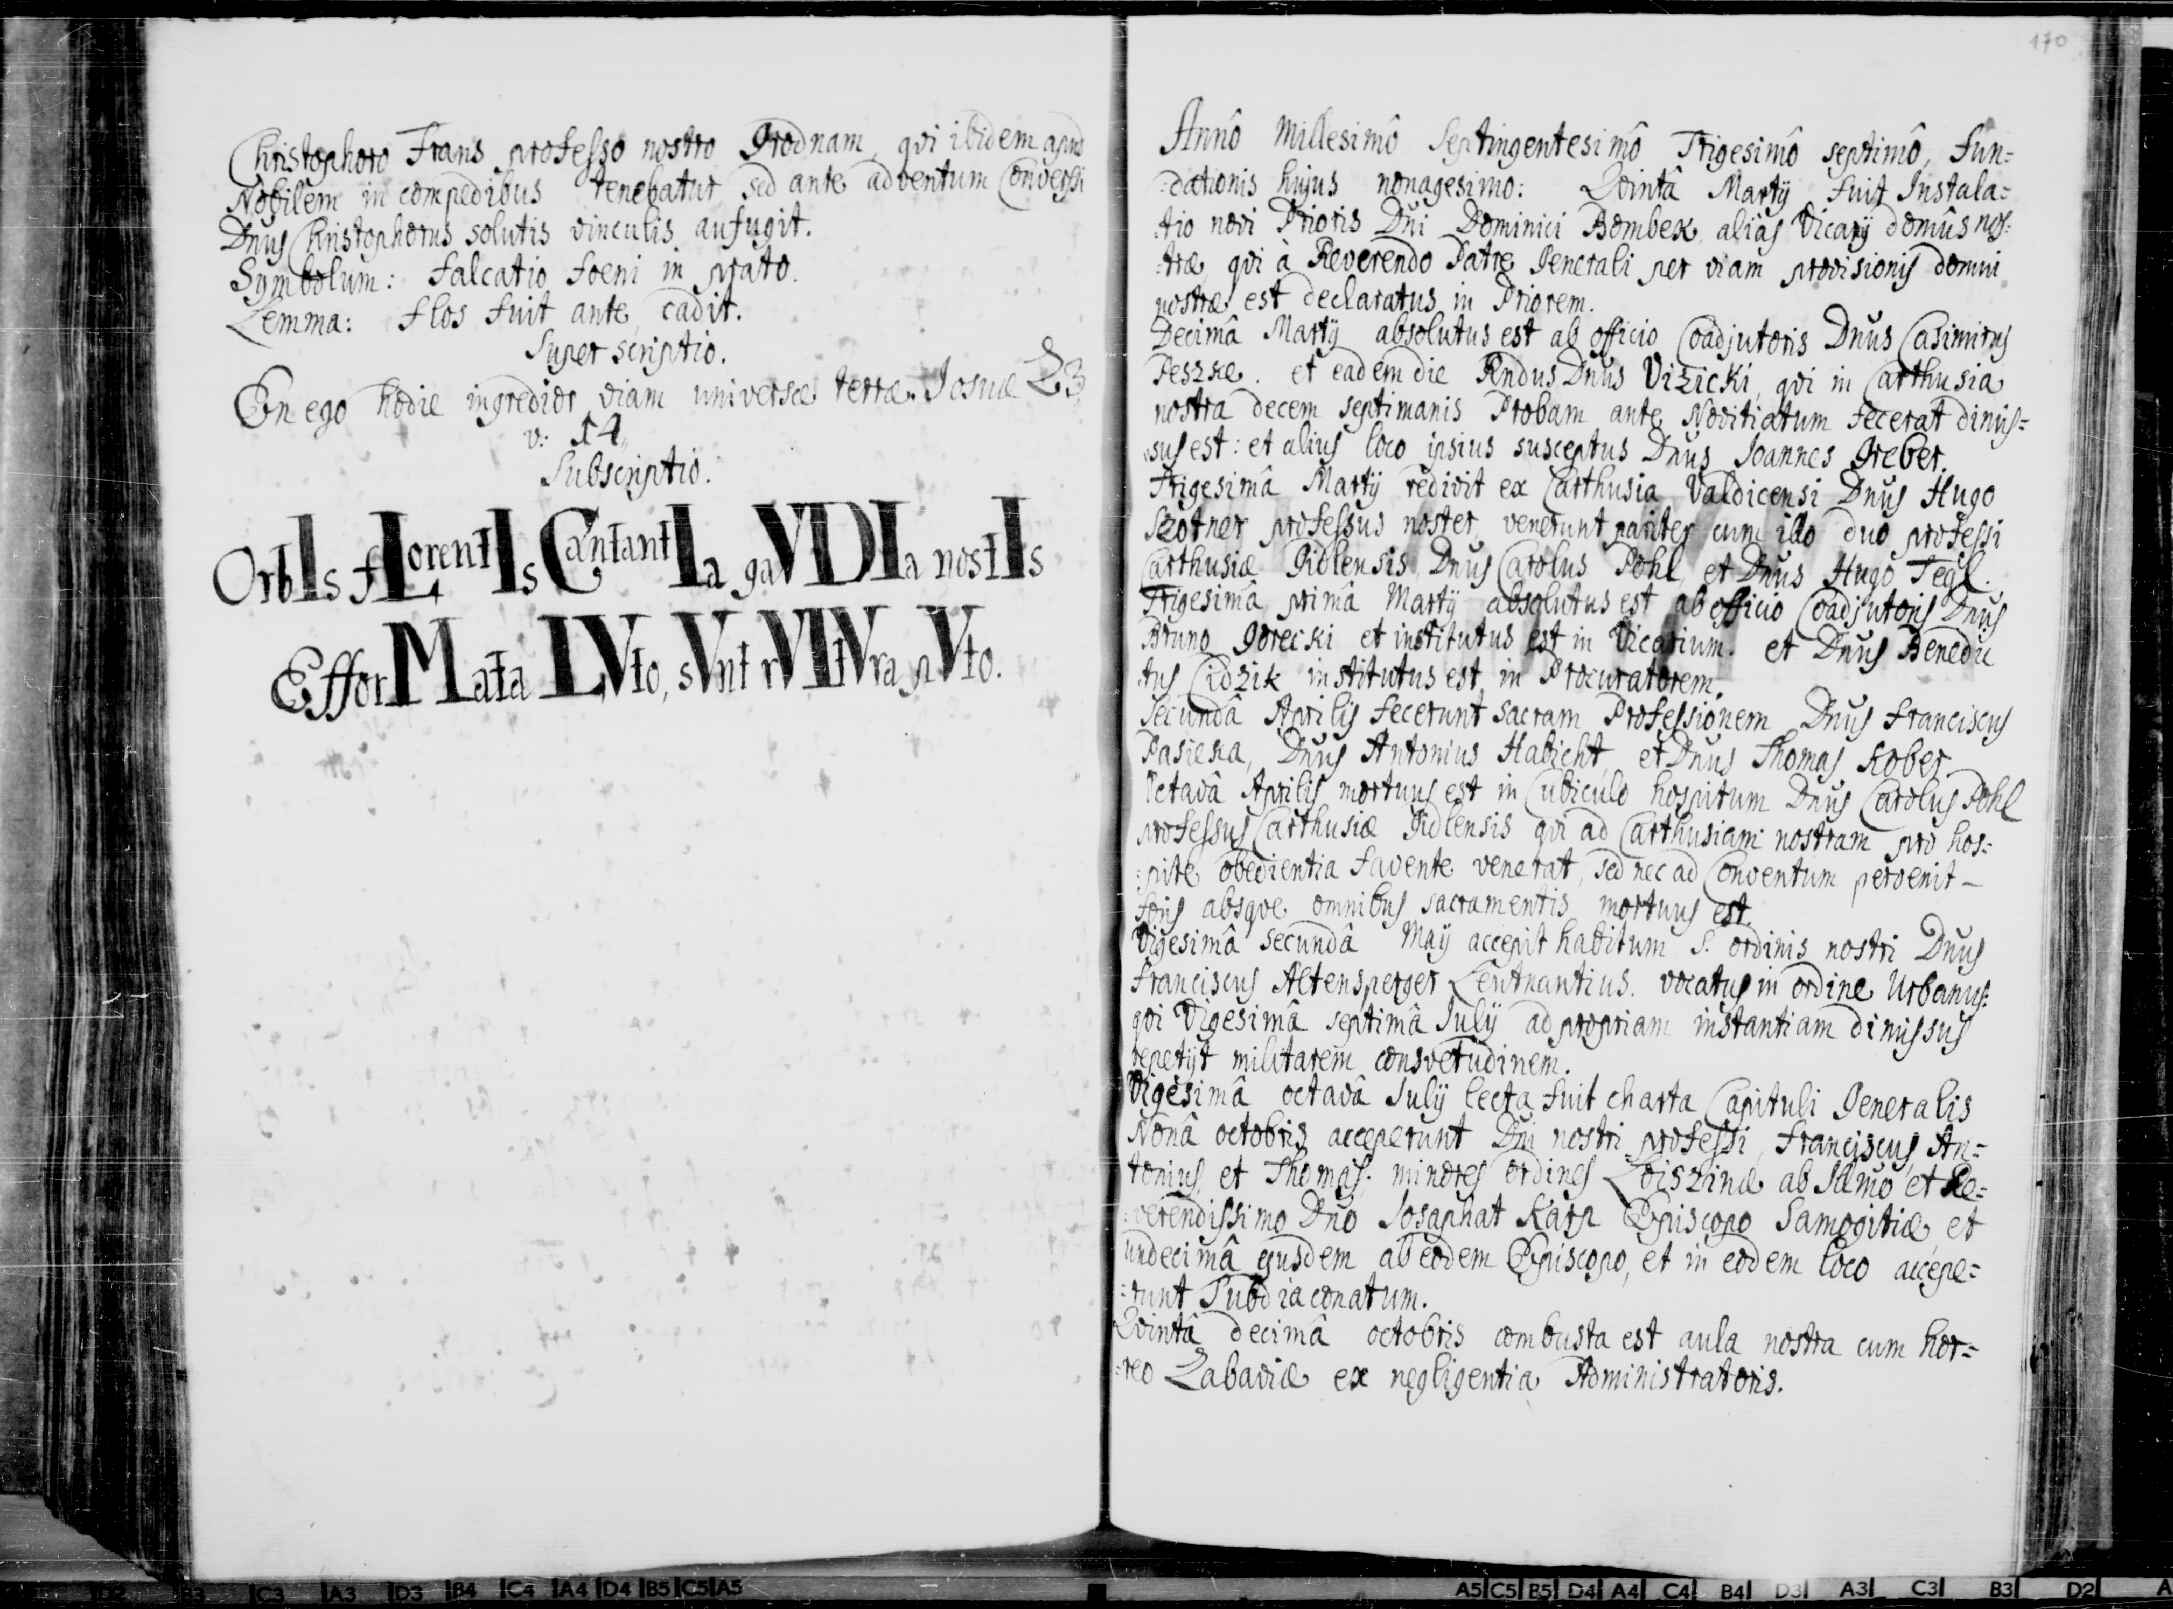 Christophoro Frans professo nostro Grodnam, qvi ibidem apud
Nobilem in compedibus tenebatur sed ante adventum Conversi
Dnus Christophorus solutis vinculis aufugit.
Symbolum: falcatio foeni in prato.
Lemma: flos fuit ante, cadit.
Super scriptio.
En ego hodie ingredior viam universæ terræ. Josuæ 23
v: 14,
Subscriptio.
OrbIs fLorentIs CantantIa gaVDIa nostIs
EfforMata LVto, sVnt rVItVra pVto.
170
Annô Millesimô Septingentesimô Trigesimô septimô, fun=
=dationis hujus nonagesimo: Qvintâ Martÿ fuit Instala=
:tio novi Prioris Dni Dominici Bombek aliàs Vicarÿ domûs nos:
:træ, qvi à Reverendo Patre Generali per viam provisionis domui
nostræ est declaratus in Priorem.
Decimâ Martÿ absolutus est ab officio Coadjutoris Dnus Casimirus
Peszke. et eadem die Rndus Dnus Vizicki, qvi in Carthusia
nostra decem septimanis Probam ante Novitiatum fecerat dimis=
sus est: et alius loco ipsius susceptus Dnus Joannes Greber.
Trigesimâ Martÿ redivit ex Carthusia Valdicensi Dnus Hugo
Szotner professus noster, venerunt pariter cum illo duo professi
Carthusiæ Gidlensis, Dnus Carolus Pohl, et Dnus Hugo Tegl.
Trigesimâ primâ Martÿ absolutus est ab officio Coadjutoris Dnus
Bruno Gorecki et institutus est in Vicarium. et Dnus Benedic
tus Cidzik institutus est in Procuratorem.
Secundâ Aprilis fecerunt sacram Professionem Dnus Franciscus
Pasieka, Dnus Antonius Habicht, et Dnus Thomas Kober.
Octavâ Aprilis mortuus est in Cubiculo hospitum Dnus Carolus Pohl
professus Carthusiæ Gidlensis qvi ad Carthusiam nostram pro hos=
:pite obedientia favente venerat, sed nec ad Conventum pervenit –
foris absqve omnibus sacramentis mortuus est.
Vigesimâ secundâ Maÿ accepit habitum S. ordinis nostri Dnus
Franciscus Altensperger Leutnantius. vocatus in ordine Urbanus:
qvi Vigesimâ septimâ Julÿ ad propriam instantiam dimissus
repetÿt militarem consvetudinem.
Vigesimâ octavâ Julÿ lecta fuit charta Capituli Generalis
Nonâ octobris acceperunt Dni nostri professi, Franciscus, An=
tonius, et Thomas: minores ordines Loiszinæ ab Illmo et Re=
:verendissimo Dno Josaphat Karp Episcopo Samogitiæ, et
undecimâ ejusdem ab eodem Episcopo, et in eodem loco accepe=
=runt Subdiaconatum.
Qvintâ decimâ octobris combusta est aula nostra cum hor=
=reo Zabaviæ ex negligentia Administratoris.